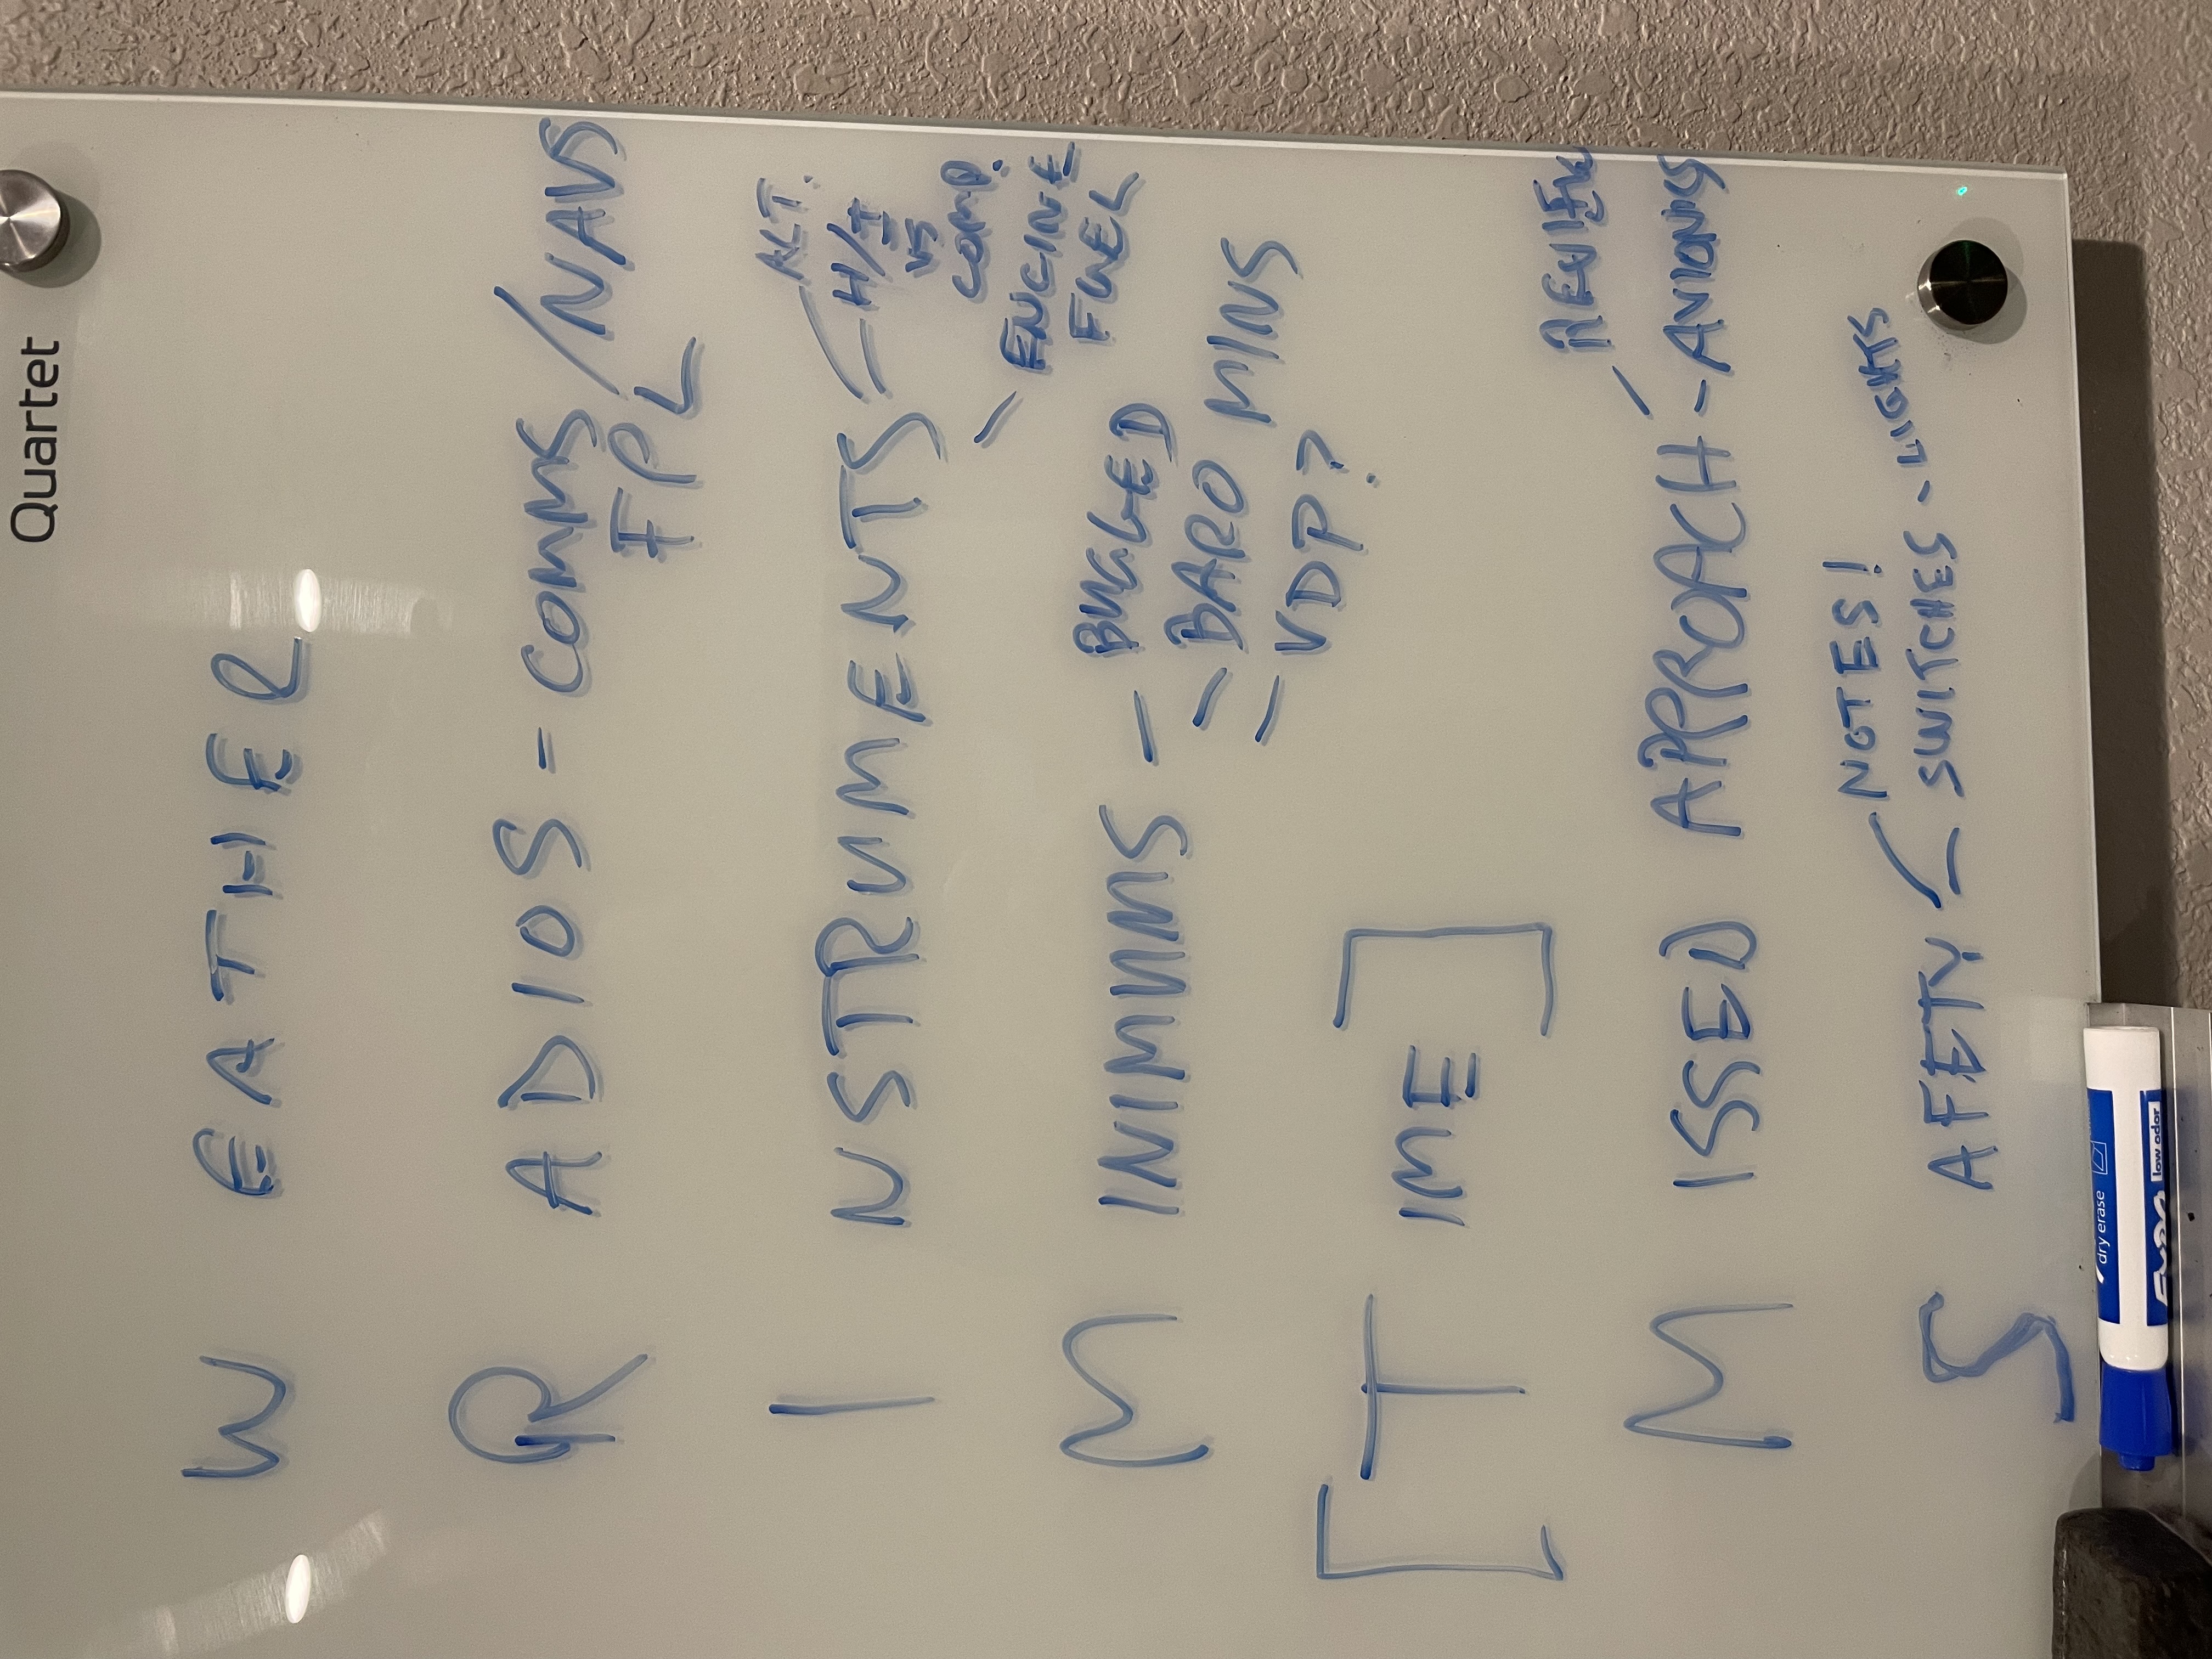 Quartet
W EATHER
R ADIOS - COMMS / NAVS
FPL
I NSTRUMENTS
ALT.
H/I
VS
COMP.
ENGINE
FUEL
M INIMUMS - BUGGED
- BARO MINS
- VDP?
[T IME]
M ISSED APPROACH - REVIEW
- AVIONICS
S AFETY - NOTES!
- SWITCHES - LIGHTS
dry erase
EXPO low odor